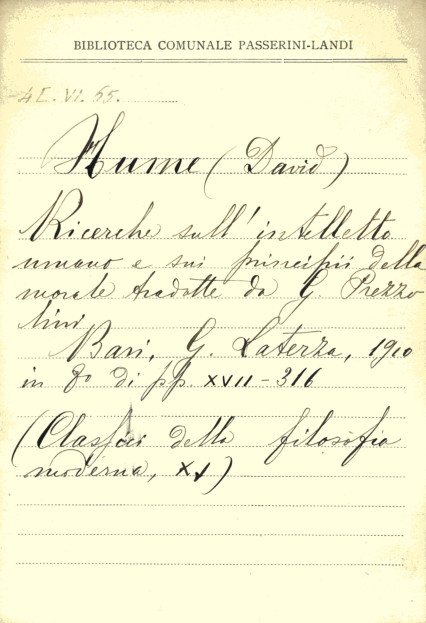 BIBLIOTECA COMUNALE PASSERINI-LANDI
4E.VI.65.
Hume (David)
Ricerche sull'intelletto
umano e sui principii della
morale tradotte da G Prezzo
lini
Bari, G. Laterza, 1910
in 8º di pp XVII-316
(Classici della filosofia
moderna, XI)